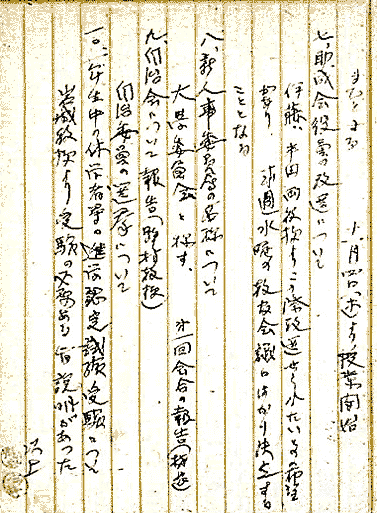 まとまる　十一月四日（水）より授業開始
七、助成会役員の改選について
伊藤、半田両教授よりこの際改選せられたい
あり　来週水曜の教授会議にはかり決定する
こととなる
八、新人事委員会の名称について
大学委員会と称す。　第一回会合の報告
九、自治会について報告（野村教授）
自治委員の選挙について
一〇、一年生中の休学者等の進学認定試験受験について
岩城教授より受験の必要ある旨説明があった
以上